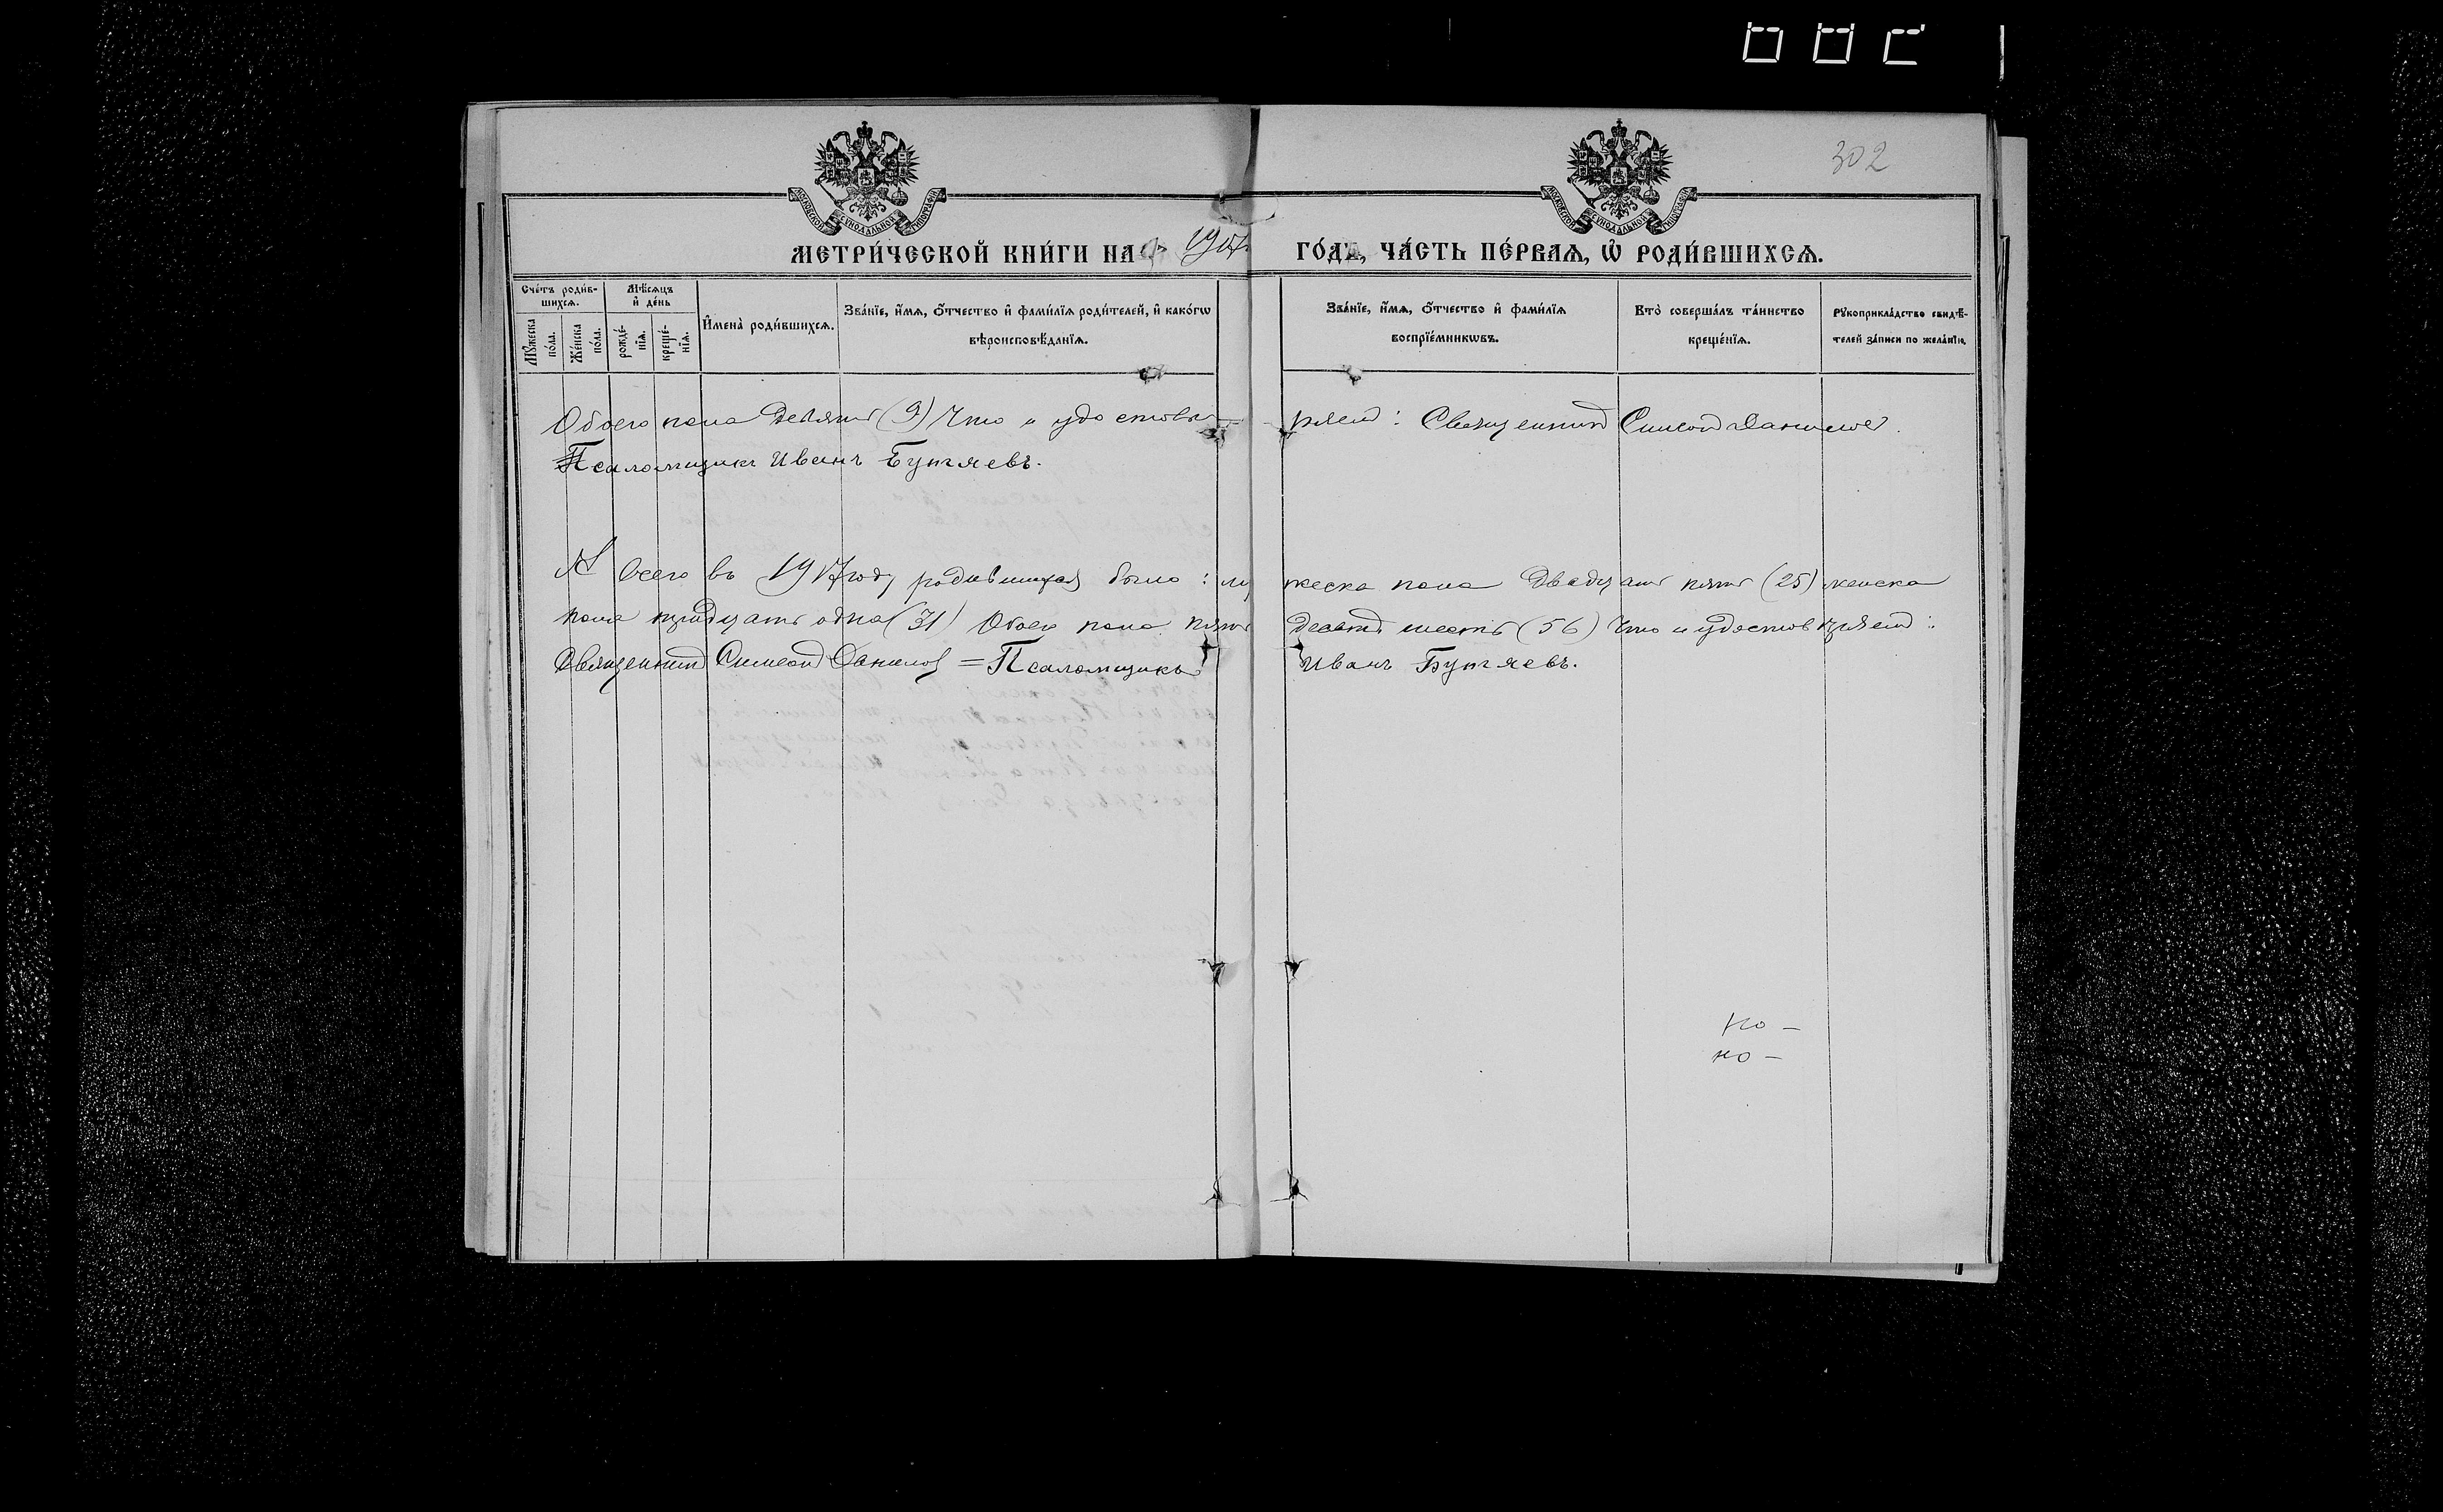 302
МОСКОВСКОЙ СѴНОДАЛЬНОЙ ТИПОГРАФІИ
МОСКОВСКОЙ СѴНОДАЛЬНОЙ ТИПОГРАФІИ
МЕТРИ́ЧЕСКОЙ КНИ́ГИ НА 1917 ГО́ДЪ, ЧА́СТЬ ПЕ́РВАѦ, Ѡ҆ РОДИ́ВШИХСѦ.
Сче́тъ роди́в-
шихсѧ.
Мꙋ́жеска по́ла.
Же́нска по́ла.
Мѣ́сѧцъ
и҆ де́нь
рожде́-
нїѧ.
креще́-
нїѧ.
И҆мена̀ роди́вшихсѧ.
Зва́нїе, и҆́мѧ, ѻ҆́тчество и҆ фами́лїѧ роди́телей, и҆ како́гѡ
вѣроисповѣ́данїѧ.
Зва́нїе, и҆́мѧ, ѻ҆́тчество и҆ фами́лїѧ
воспрїе́мникѡвъ.
Кто̀ соверша́лъ та́инство
креще́нїѧ.
Рꙋкоприкла́дство свидѣ́-
телей за́писи по жела́нїю.
Обоего пола девять (9) Что и удостовѣряемъ: Священникъ Симеонъ Даниловъ.
Псаломщикъ Иванъ Бутяевъ.
А всего въ 1917 году родившихся было: мужеска пола двадцать пять (25) женска
пола тридцать одна (31) Обоего пола пятьдесятъ шесть (56) Что и удостовѣряемъ:
Священникъ Симеонъ Даниловъ = Псаломщикъ Иванъ Бутяевъ.
но –
но –